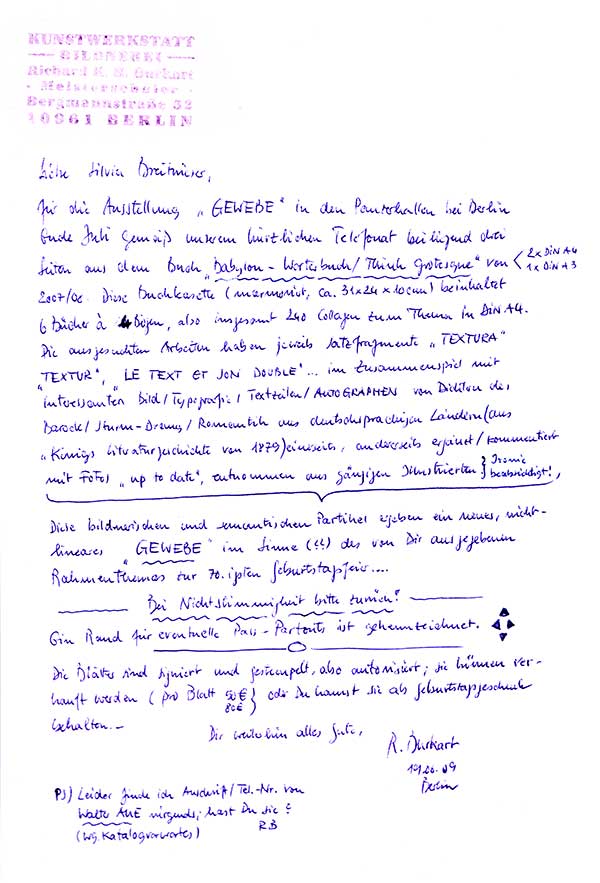 KUNSTWERKSTATT
— BILDNEREI —
Richard E. H. Burkart
- Meisterschüler -
Bergmannstraße 52
10961 BERLIN
Liebe Silvia Breitwieser,
für die Ausstellung „GEWEBE“ in den Panzerhallen bei Berlin
Ende Juli gemäß unserem kürzlichen Telefonat beiliegend drei
Seiten aus dem Buch „Babylon - Wörterbuch / Think Grotesque“ von < 2x DIN A4
1x DIN A3
2007/08. Diese Buchkassette (marmoriert, ca. 31x24x10cm) beinhaltet
6 Bücher à Bögen, also insgesamt 240 Collagen zum Thema in DIN A4.
Die ausgesuchten Arbeiten haben jeweils Satzfragmente „TEXTURA“
„TEXTUR“, „LE TEXT ET SON DOUBLE“... im Zusammenspiel mit
interessanten Bild / Typografie / Textzeilen / AUTOGRAPHEN von Dichtern des
Barock / Sturm-Drang / Romantik aus deutschsprachigen Ländern (aus
„Königs Literaturgeschichte von 1879) einerseits, andererseits ergänzt / kommentiert
mit Fotos „up to date“, entnommen aus gängigen Illustrierten } Ironie
beabsichtigt!,
Diese bildnerischen und semantischen Partikel ergeben ein neues, nicht-
lineares „GEWEBE“ im Sinne (!!) des von Dir ausgegebenen
Rahmenthemas zur 70.igsten Geburtstagsfeier....
Bei Nichtstimmigkeit bitte zurück!
Ein Rand für eventuelle Pass-Partouts ist gekennzeichnet.
Die Blätter sind signiert und gestempelt, also autorisiert; sie können ver-
kauft werden (pro Blatt 50€
80€ } oder Du kannst sie als Geburtstagsgeschenk
behalten.-
Dir weiterhin alles Gute,
R. Burkart
Berlin
PS) Leider finde ich Anschrift / Tel.-Nr. von
Walter AUE nirgends; hast Du sie?
(wg. Katalogvorwortes) RB